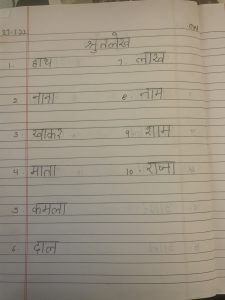 27-7-22
श्रुतलेख
1. हाथ 7. लाख
2. नाना 8. नाम
3. खाकर 9. शाम
4. माता 10. राजा
5. कमला
6. दाल